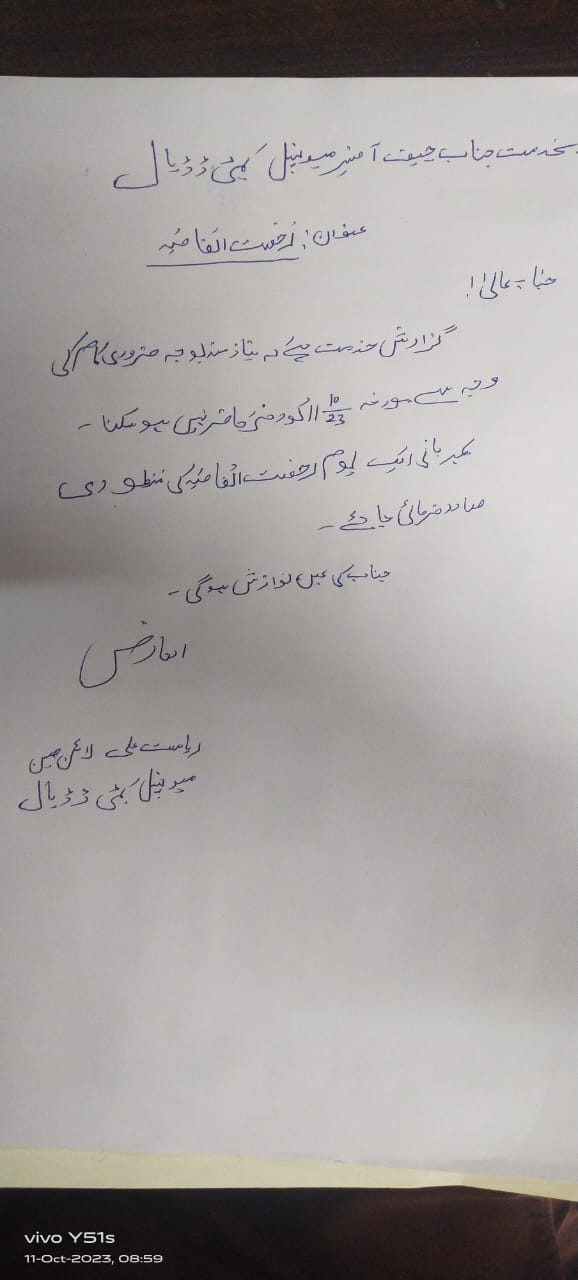 بخدمت جناب چیف آفیسر میونسپل کمیٹی ڈڈیال
عنوان: رخصت اتفاقیہ
جناب عالیٰ!!
گزارش خدمت ہے کہ نیازمند بوجہ ضروری کام کی
وجہ سے مورخہ 11/10/23 کو دفتر حاضر نہیں ہو سکتا۔
مہربانی ایک یوم رخصت اتفاقیہ کی منظوری
صادر فرمائی جائے۔
جناب کی عین نوازش ہوگی۔
العارض
ریاست علی لائن مین
میونسپل کمیٹی ڈڈیال
vivo Y51s
11-Oct-2023, 08:59